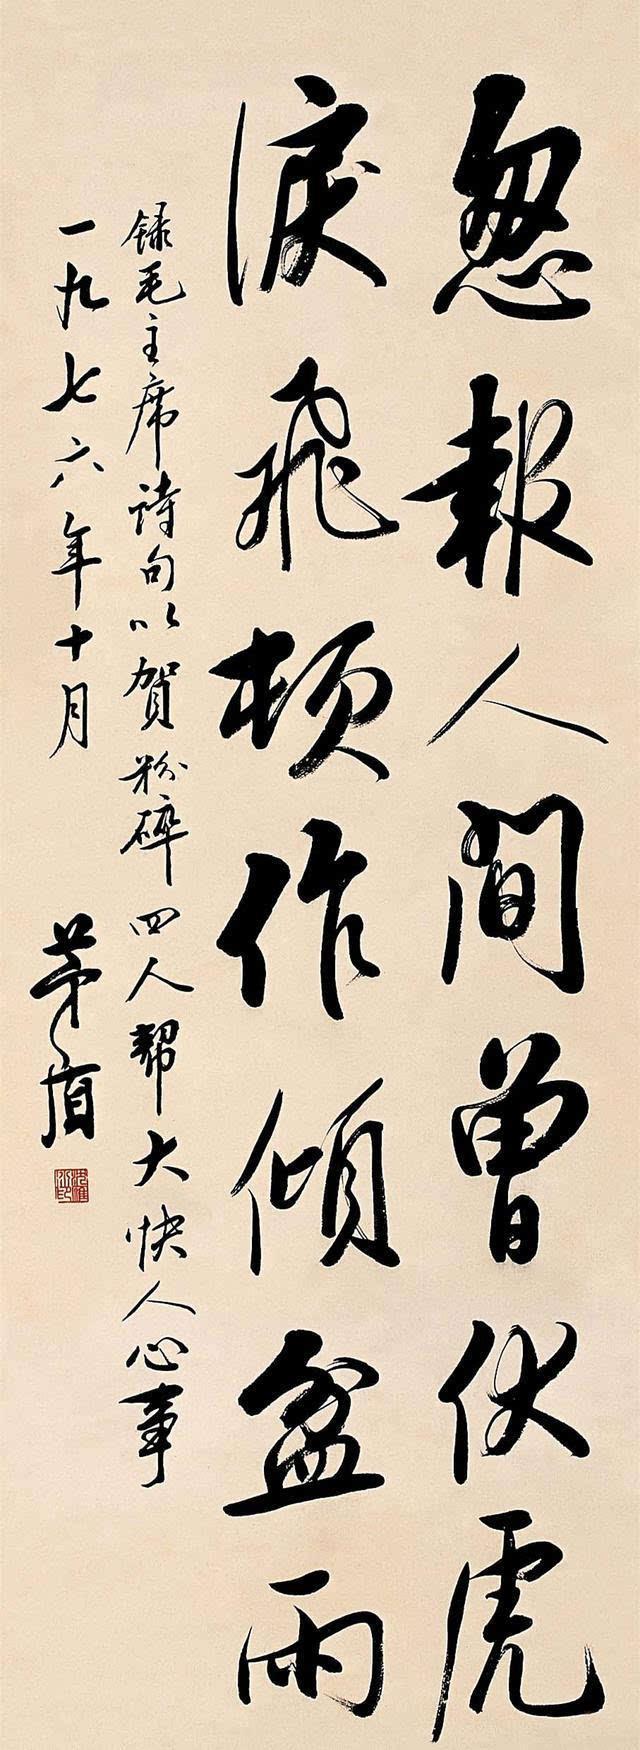 忽報人間曾伏虎
淚飛頓作傾盆雨
録毛主席诗句以賀粉碎四人帮大快人心事
一九七六年十月
茅盾